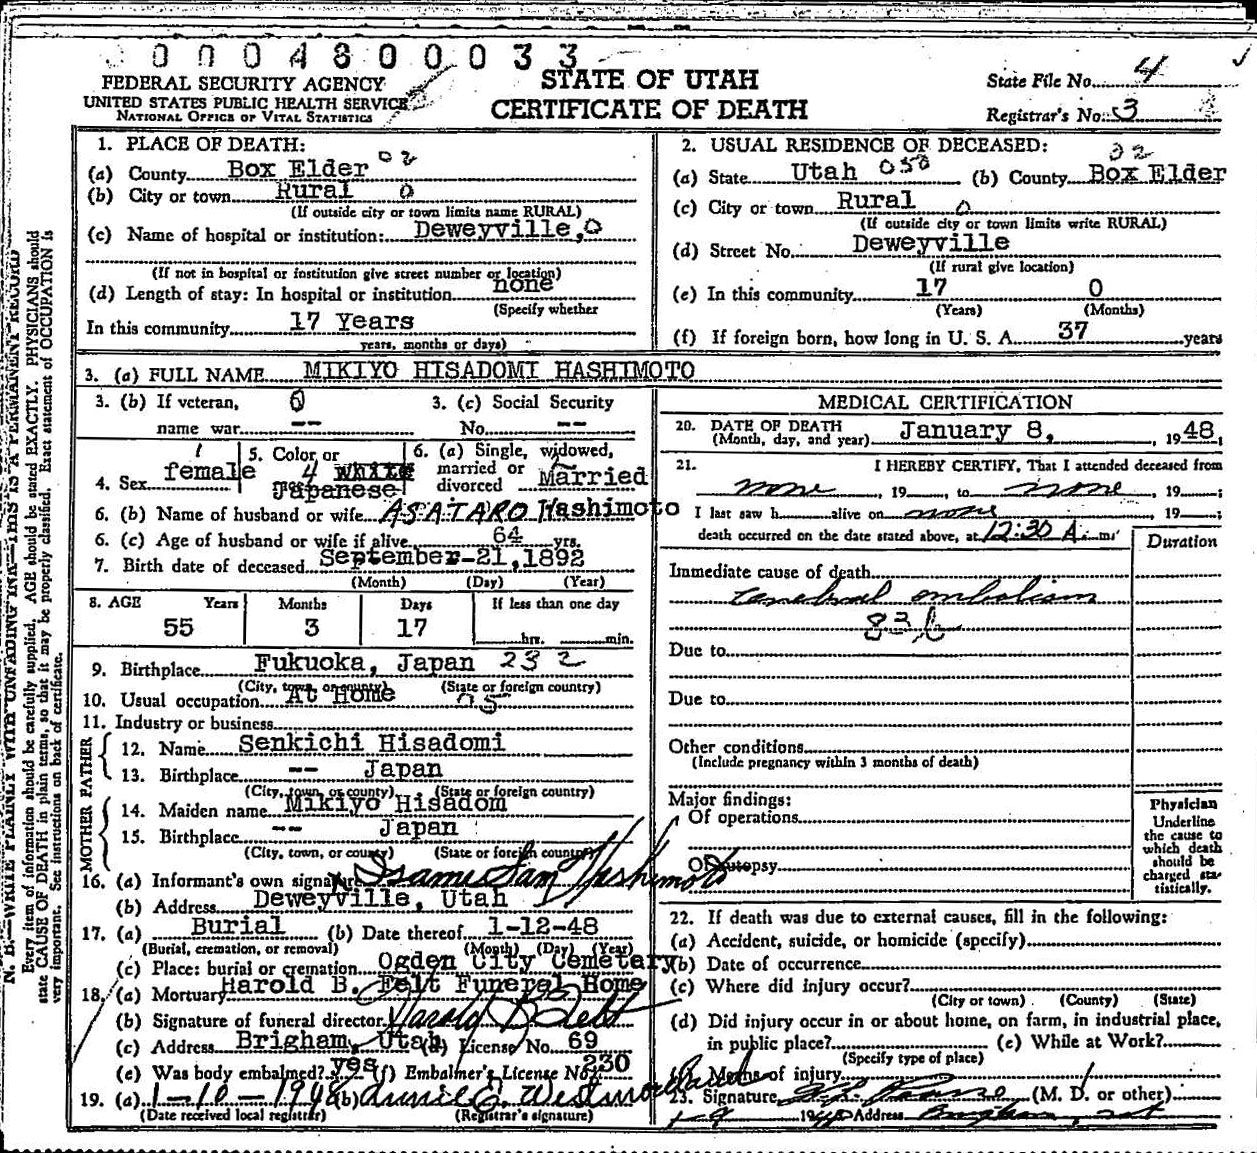 0004800033
FEDERAL SECURITY AGENCY
UNITED STATES PUBLIC HEALTH SERVICE
NATIONAL OFFICE OF VITAL STATISTICS
STATE OF UTAH
CERTIFICATE OF DEATH
State File No. 4
Registrar's No. 3
N. B.—WRITE PLAINLY WITH UNFADING INK—THIS IS A PERMANENT RECORD
Every item of information should be carefully supplied. AGE should be stated EXACTLY. PHYSICIANS should
state CAUSE OF DEATH in plain terms, so that it may be properly classified. Exact statement of OCCUPATION is
very important. See instructions on back of certificate.
1. PLACE OF DEATH:
(a) County Box Elder 02
(b) City or town Rural 0
(If outside city or town limits name RURAL)
(c) Name of hospital or institution: Deweyville, 0
(If not in hospital or institution give street number or location)
(d) Length of stay: In hospital or institution none
(Specify whether
In this community 17 Years
years, months or days)
2. USUAL RESIDENCE OF DECEASED:
(a) State Utah 050 (b) County Box Elder
(c) City or town Rural 0
(If outside city or town limits write RURAL)
(d) Street No. Deweyville
(If rural give location)
(e) In this community 17 0
(Years) (Months)
(f) If foreign born, how long in U. S. A. 37 years
3. (a) FULL NAME MIKIYO HISADOMI HASHIMOTO
3. (b) If veteran, 0 3. (c) Social Security
name war -- No. --
4. Sex female 5. Color or 4 white Japanese
6. (a) Single, widowed, married or divorced Married
6. (b) Name of husband or wife ASATARO Hashimoto
6. (c) Age of husband or wife if alive 64 yrs.
7. Birth date of deceased September-21,1892
(Month) (Day) (Year)
8. AGE Years Months Days If less than one day
55 3 17 hr. min.
9. Birthplace Fukuoka, Japan 232
(City, town, or county) (State or foreign country)
10. Usual occupation At Home
11. Industry or business
FATHER
12. Name Senkichi Hisadomi
13. Birthplace -- Japan
(City, town, or county) (State or foreign country)
MOTHER
14. Maiden name Mikiyo Hisadom
15. Birthplace -- Japan
(City, town, or county) (State or foreign country)
16. (a) Informant's own signature Isamu Sam Hashimoto
(b) Address Deweyville, Utah
17. (a) Burial (b) Date thereof 1-12-48
(Burial, cremation, or removal) (Month) (Day) (Year)
(c) Place: burial or cremation Ogden City Cemetary
18. (a) Mortuary Harold B. Felt Funeral Home
(b) Signature of funeral director Harold B Felt
(c) Address Brigham, Utah (d) License No. 69
(e) Was body embalmed? yes (f) Embalmer's License No. 230
19. (a) 1-10-1948 (b) Annie E. Westmoreland
(Date received local registrar) (Registrar's signature)
MEDICAL CERTIFICATION
20. DATE OF DEATH
(Month, day, and year) January 8, , 1948,
21. I HEREBY CERTIFY, That I attended deceased from
none , 19 , to none , 19 ;
I last saw h alive on none , 19 ;
death occurred on the date stated above, at 12:30 A. m.
Duration
Immediate cause of death
Cerebral embolism
83b
Due to
Due to
Other conditions
(Include pregnancy within 3 months of death)
Major findings:
Of operations
Of autopsy
Physician
Underline
the cause to
which death
should be
charged sta-
tistically.
22. If death was due to external causes, fill in the following:
(a) Accident, suicide, or homicide (specify)
(b) Date of occurrence
(c) Where did injury occur?
(City or town) (County) (State)
(d) Did injury occur in or about home, on farm, in industrial place,
in public place? (e) While at Work?
(Specify type of place)
Means of injury
23. Signature (M. D. or other)
1-9 1948 Address Brigham, Ut